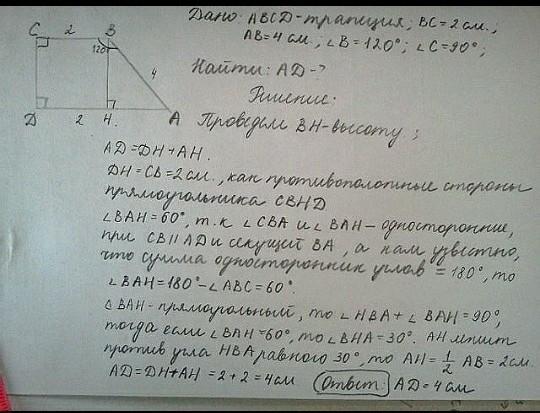 Дано: ABCD-трапеция; BC=2 см.;
AB=4 см.; ∠B=120°; ∠C=90°;
Найти: AD-?
Решение:
Проведём BH-высоту;
C 2 B
120°
4
D 2 H. A
AD=DH+AH.
DH=CB=2см., как противоположные стороны
прямоугольника CBHD
∠BAH=60°, т.к ∠CBA и ∠BAH-односторонние,
при CB∥AD и секущей BA, а нам узвестно,
что сумма односторонник углов =180°, то
∠BAH=180°-∠ABC=60°.
△BAH-прямоугольный, то ∠HBA+∠BAH=90°,
тогда если ∠BAH=60°, то ∠BHA=30°. AH лежит
против угла HBA равного 30°, то AH=1/2 AB=2см.
AD=DH+AH=2+2=4см Ответ: AD=4см